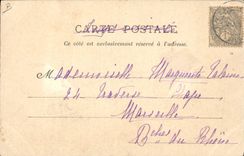 CARTE POSTALE
Ce côté est exclusivement réservé à l'adresse.
Mademoiselle Marguerite
24 Traverse
Marseille
Bches du Rhône